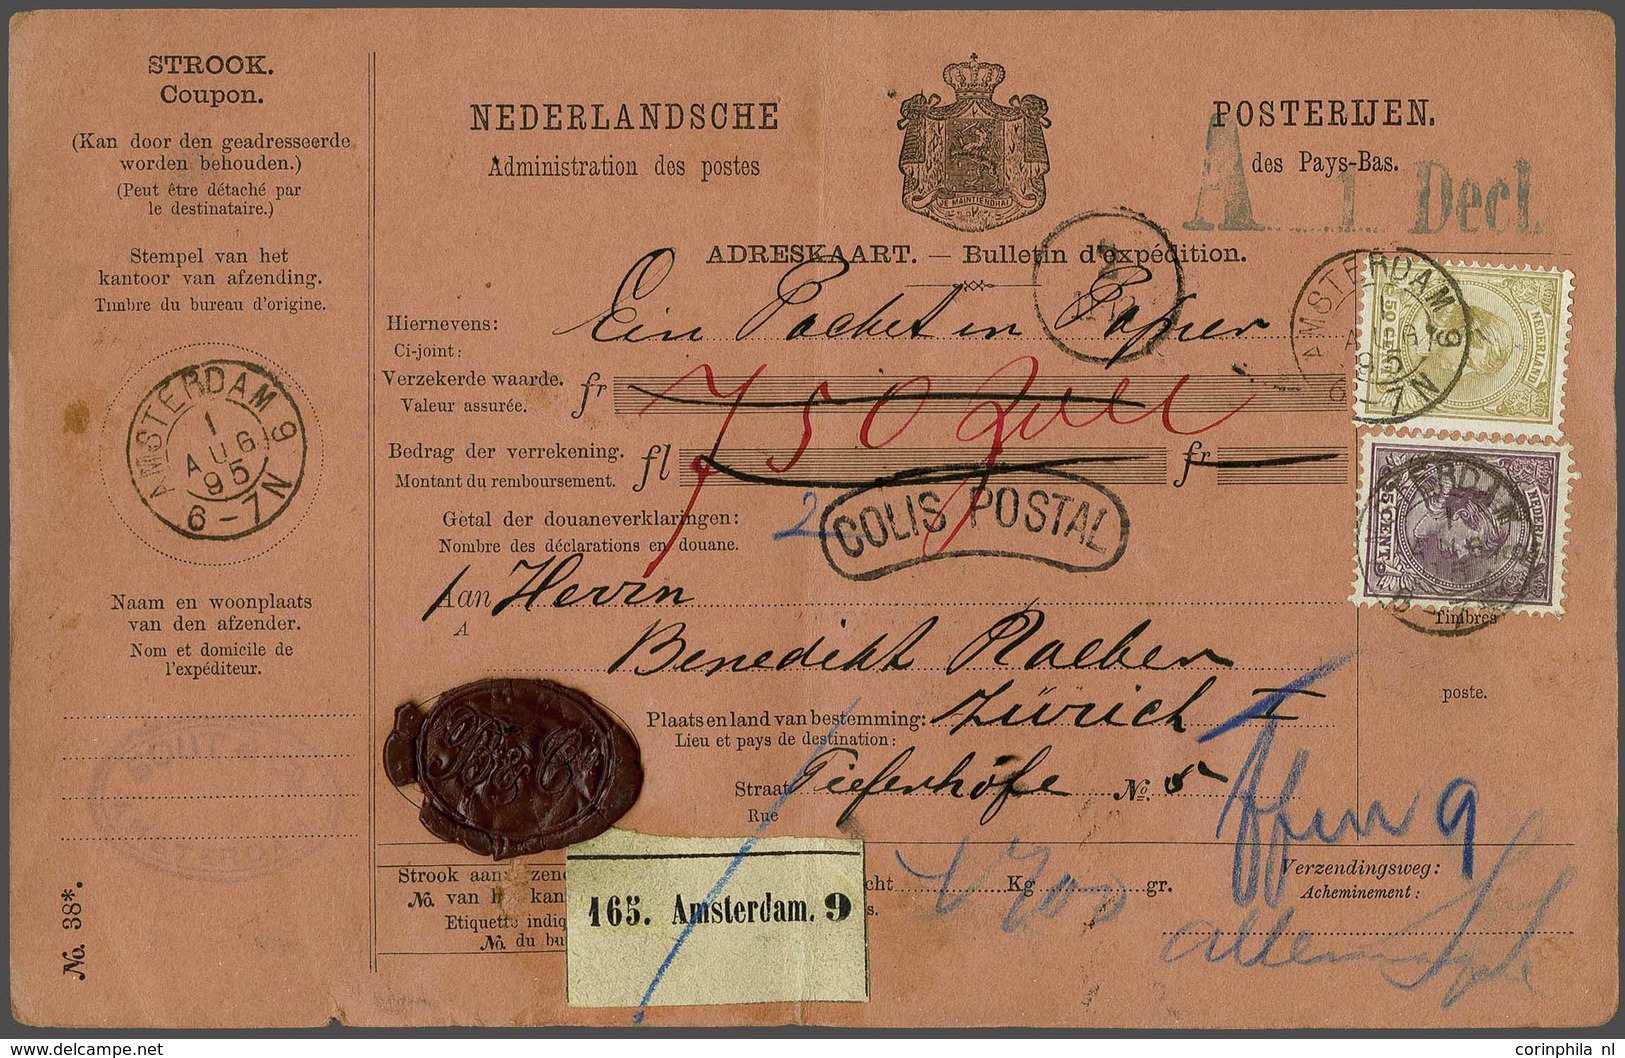 STROOK.
Coupon.
(Kan door den geadresseerde
worden behouden.)
(Peut être détaché par
le destinataire.)
Stempel van het
kantoor van afzending.
Timbre du bureau d'origine.
AMSTERDAM 9
1
AUG
95
6-7N
Naam en woonplaats
van den afzender.
Nom et domicile de
l'expéditeur.
No. 38*.
NEDERLANDSCHE
POSTERIJEN.
Administration des postes
des Pays-Bas.
JE MAINTIENDRAI
A 1 Decl.
ADRESKAART. — Bulletin d'expédition.
Hiernevens: Ein Packet in Papier
Ci-joint:
Verzekerde waarde. fr
Valeur assurée.
750
Bedrag der verrekening. fl fr
Montant du remboursement.
Getal der douaneverklaringen: 2
Nombre des déclarations en douane.
COLIS POSTAL
Aan Herrn
A
Benedikt Raeber
Plaats en land van bestemming: Zürich I
Lieu et pays de destination:
Straat Tiefenhöfe No. 5
Rue
AMSTERDAM 9
1
AUG
95
6-7N
50 CENT
NEDERLAND
25 CENT
NEDERLAND
Timbres
poste.
B & Co
Strook aan
No. van
Etiquette
No. du
165. Amsterdam. 9
Kg gr.
Verzendingsweg:
Acheminement:
9
corinphila nl